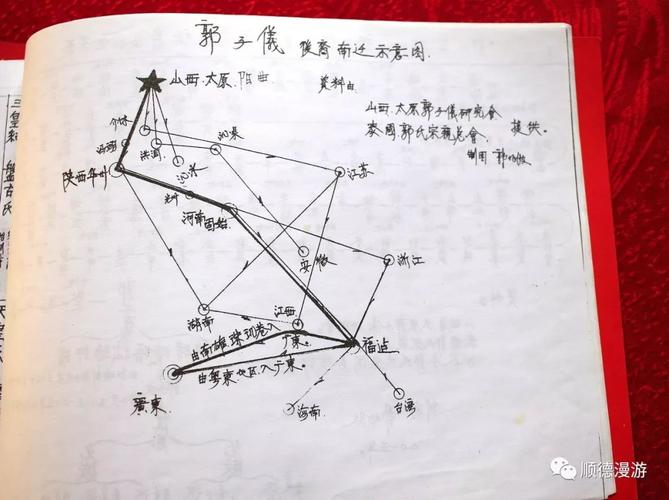 郭子儀 後裔南迁示意图.
山西.太原.阳曲 資料由
山西.太原郭子儀研究会
泰國郭氏宗親总会. 提供。
制图 郭
介休
汾阳 洪洞 沁县
陕西华州 江苏
河南固始
安徽 浙江
湖南 江西
由南雄珠玑巷入广东。 福建
由粤東地区入广东。
廣東 海南 台湾
三皇紀 盤古氏
顺德漫游